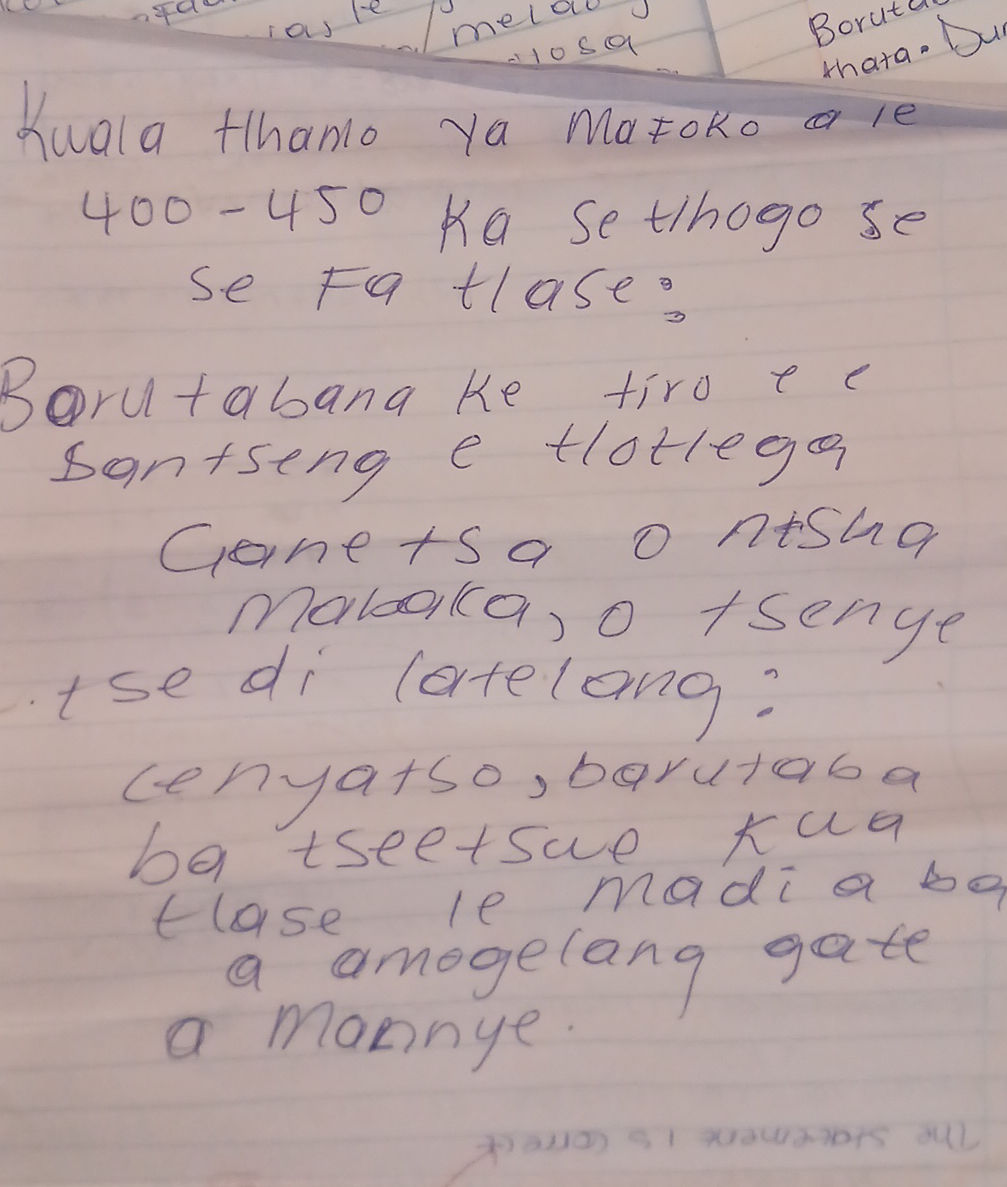 Borut
thata.
melao
iosa
Kwala tlhamo ya mafoko a le
400-450 ka setlhogo se
se fa tlase:
Borutabana ke tiro e e
santseng e tlotlega
Ganetsa o ntsha
mabaka, o tsenye
tse di latelang:
lenyatso, barutaba
ba tseetswe kwa
tlase le madi a ba
a amogelang gate
a mannye.
The statement is correct